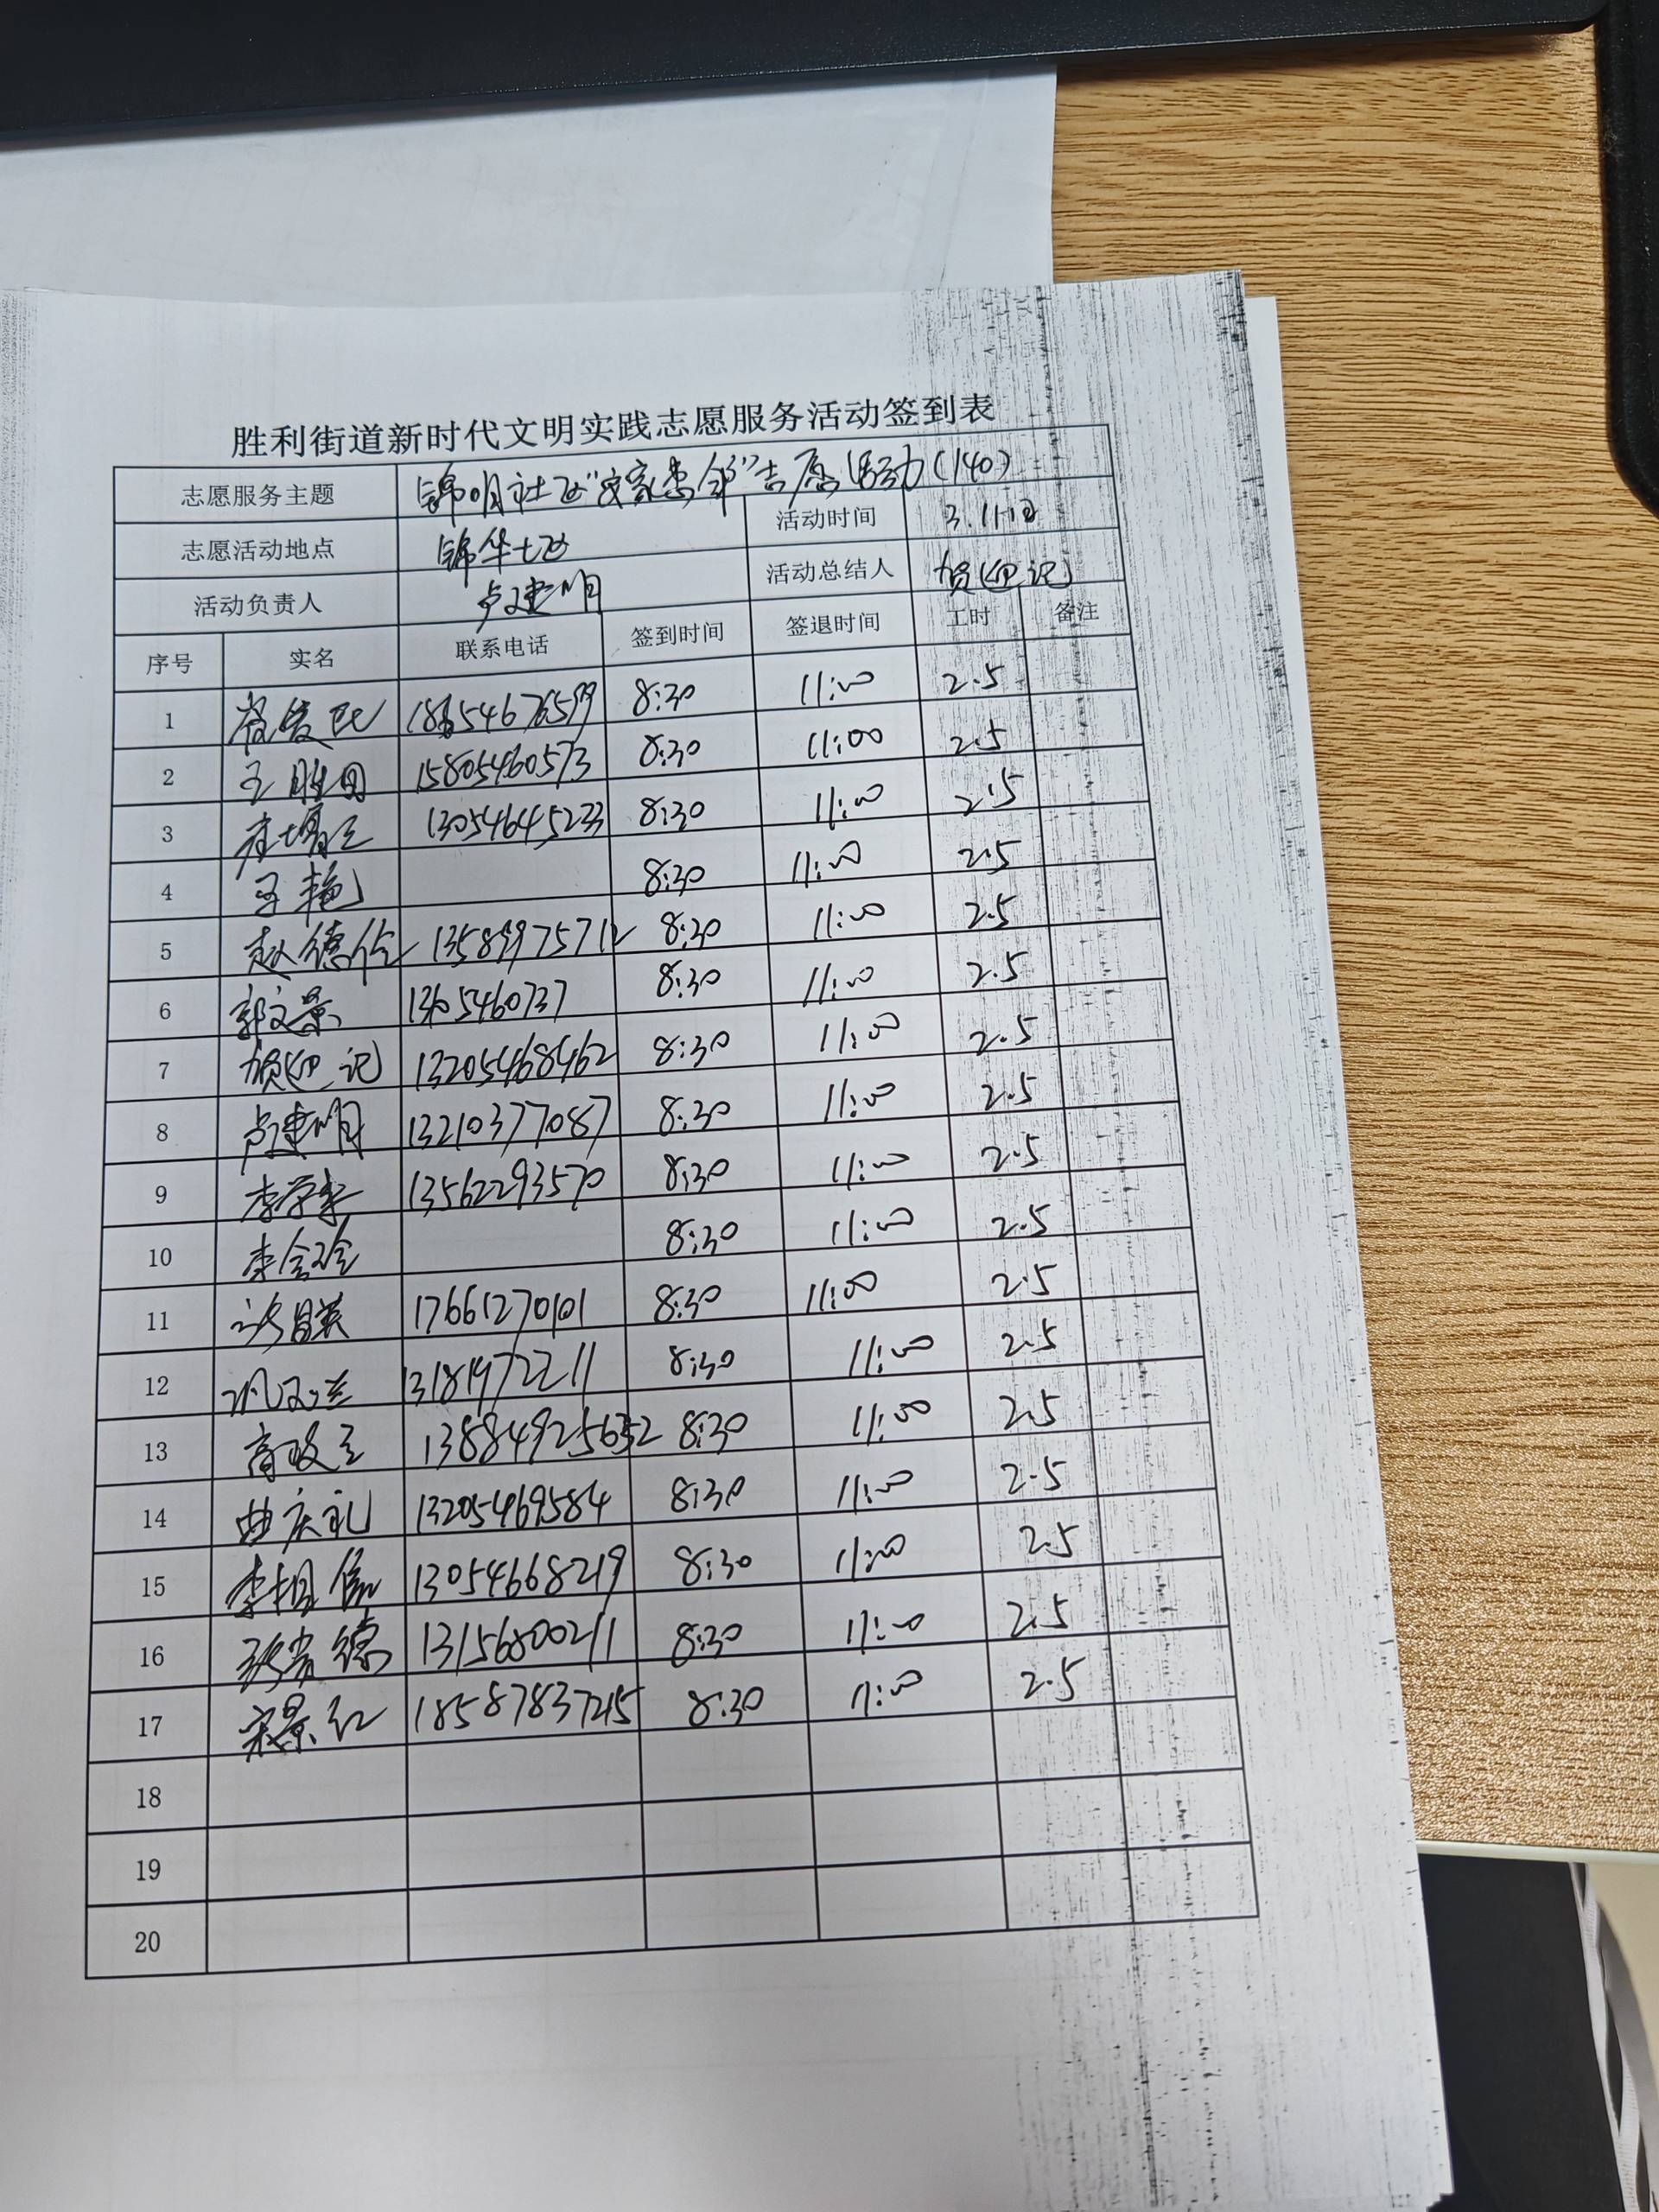 胜利街道新时代文明实践志愿服务活动签到表
志愿服务主题 锦明社区 志愿活动(140)
志愿活动地点 锦华七区 活动时间 3.11日
活动负责人 卢建明 活动总结人 贺迎记
序号 实名 联系电话 签到时间 签退时间 工时 备注
1 8:30 11:00 2.5
2 王胜田 15805460573 8:30 11:00 2.5
3 13054645233 8:30 11:00 2.5
4 王艳 8:30 11:00 2.5
5 赵德伦 13589975712 8:30 11:00 2.5
6 郭文景 1305460737 8:30 11:00 2.5
7 贺迎记 13205468462 8:30 11:00 2.5
8 卢建明 13210377087 8:30 11:00 2.5
9 李学军 13562293570 8:30 11:00 2.5
10 8:30 11:00 2.5
11 17661270101 8:30 11:00 2.5
12 13181972211 8:30 11:00 2.5
13 8:30 11:00 2.5
14 曲庆礼 13205469584 8:30 11:00 2.5
15 13054668219 8:30 11:00 2.5
16 13156800211 8:30 11:00 2.5
17 宋景红 18587837215 8:30 11:00 2.5
18
19
20